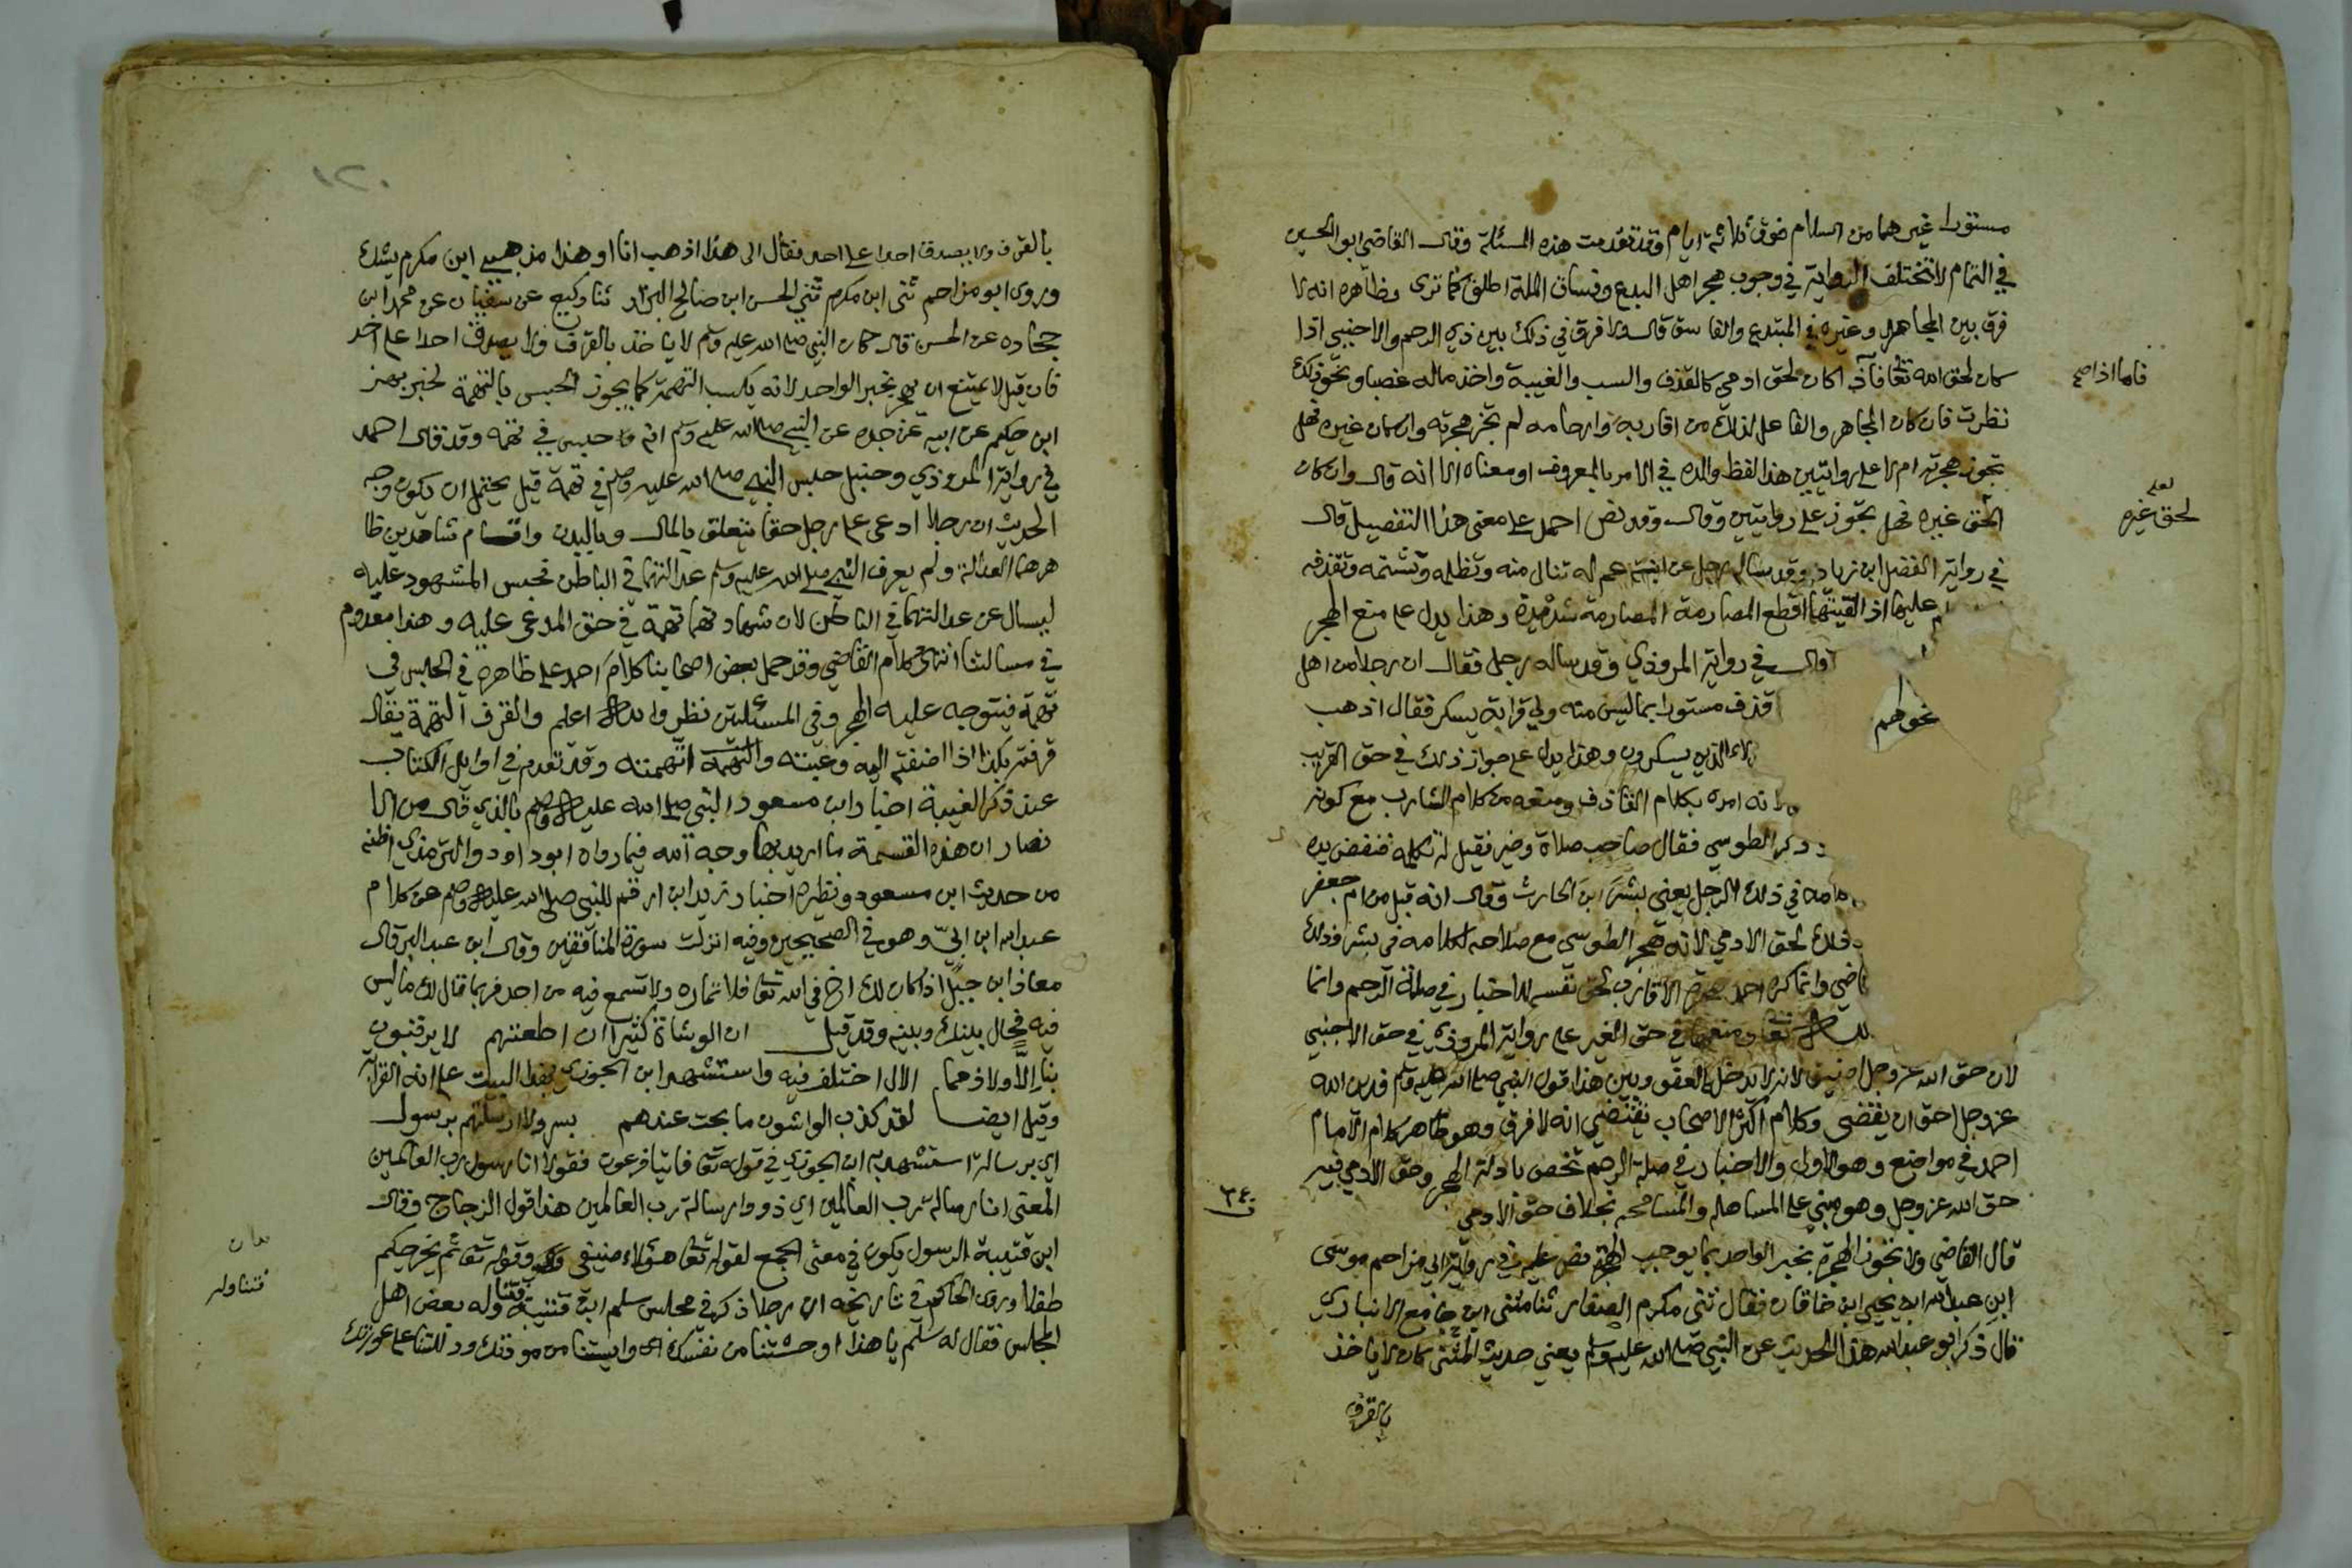 مستورا غيرهما من السلام فوق ثلاثة ايام وقد تقدمت هذه المسئلة وقال القاضي ابو الحسين
في التمام لا تختلف الرواية في وجوب هجر اهل البدع وفساق الملة اطلق كما ترى وظاهره انه لا
فرق بين المجاهر وغيره في المبتدع والفاسق قال ولا فرق في ذلك بين ذي الرحم والاجنبي اذا
كان لحق الله تعا فاذا كان لحق ادمي كالقذف والسب والغيبة واخذ ماله غصبا ونحو ذلك
فاما اذا صح
نظرت فان كان المجاهر والفاعل لذلك من اقاربه وارحامه لم تجز هجرته وان كان غيره فهل
تجوز هجرته ام لا على روايتين هذا لفظ والده في الامر بالمعروف او معناه الا انه قال وان كان
لحق غيره فهل تجوز على روايتين وقال وقد نص احمد على معنى هذا التفصيل قال
لعله لحق غيره
في رواية الفضل ابن زياد وقد ساله رجل عن ابنة عم له تنال منه وتظلمه وتشتمه وتقذفه
عليها اذا لقيتها اقطع المصارمة المصارمة شديدة وهذا يدل على منع الهجر
وقال في رواية المروذي وقد ساله رجل فقال ان رجلا من اهل
قذف مستورا بما ليس منه ولي قرابة يسكر فقال اذهب
الذين يسكرون وهذا يدل على جواز ذلك في حق القريب
نحوهم
انه امره بكلام القاذف ومنعه من كلام الشارب مع كونه
ذكر الطوسي فقال صاحب صلاة وخير فقيل له تكلمه فنفض يده
في ذلك الرجل يعني بشر ابن الحارث وقال انه قبل من ام جعفر
لحق الادمي لانه هجر الطوسي مع صلاحه لكلامه في بشر وذلك
وانما كره احمد هجرة الاقارب لحق نفسه للاخبار في صلة الرحم وانما
تعا ومنعها في حق الغير على رواية المروذي في حق الاجنبي
لان حق الله عز وجل اضيق لانه لا يدخله العفو وبين هذا قول النبي صلى الله عليه وسلم فدين الله
عز وجل احق ان يقضى وكلام اكثر الاصحاب يقتضي انه لا فرق وهو ظاهر كلام الامام
احمد في مواضع وهو الاولى والاخبار في صلة الرحم تخص بادلة الهجر وحق الادمي فيه
حق الله عز وجل وهو مبني على المساهلة والمسامحة بخلاف حق الادمي
قال القاضي ولا تجوز الهجرة بخبر الواحد بما يوجب الهجرة نص عليه في رواية ابي مزاحم موسى
ابن عبد الله ابن يحيى ابن خاقان فقال ثنى مكرم الصفار ثنا مثنى ابن جامع الانباري
قال ذكر ابو عبد الله هذا الحديث عن النبي صلى الله عليه وسلم يعني حديث المثنى كان لا ياخذ
بالقرف
بالقرف ولا يصدق احدا على احد فقال الى هذا اذهب انا او هذا مذهبي ابن مكرم يشك
وروى ابو مزاحم ثنى ابن مكرم ثنى الحسن ابن صالح البزار ثنا وكيع عن سفيان عن محمد ابن
جحاده عن الحسن قال كان النبي صلى الله عليه وسلم لا ياخذ بالقرف ولا يصدق احدا على احد
فان قيل لا يمتنع ان يهجر بخبر الواحد لانه يكسب التهمة كما يجوز الحبس بالتهمة لخبر بهز
ابن حكيم عن ابيه عن جده عن النبي صلى الله عليه وسلم انه حبس في تهمه وقد قال احمد
في رواية المروذي وحنبل حبس النبي صلى الله عليه وسلم في تهمة قيل يحتمل ان يكون وجه
الحديث ان رجلا ادعى على رجل حقا يتعلق بالمال وبالبدن واقام شاهدين ظا
هرهما العدالة ولم يعرف النبي صلى الله عليه وسلم عدالتهما في الباطن فحبس المشهود عليه
ليسال عن عدالتهما في الباطن لان شهادتهما تهمة في حق المدعى عليه وهذا معدوم
في مسالتنا انتهى كلام القاضي وقد حمل بعض اصحابنا كلام احمد على ظاهره في الحبس في
تهمة فيتوجه عليه الهجر وفي المسئلتين نظر والله اعلم والقرف التهمة يقال
قرفته بكذا اذا اضفته اليه وعبته والتهمة اتهمته وقد تقدم في اوايل الكتاب
عند ذكر الغيبة اخبار ابن مسعود النبي صلى الله عليه وسلم بالذي قال من الا
نصار ان هذه القسمة ما اريد بها وجه الله فيما رواه ابو داود والترمذي اظنه
من حديث ابن مسعود ونظيره اخبار زيد ابن ارقم للنبي صلى الله عليه وسلم عن كلام
عبد الله ابن ابي وهو في الصحيحين وفيه انزلت سورة المنافقين وقال ابن عبد البر قال
معاذ ابن جبل اذا كان لك اخ في الله تعا فلا تماره ولا تسمع فيه من احد فربما قال لك ما ليس
فيه فحال بينك وبينه وقد قيل ان الوشاة كثير ان اطعتهم لا يرقبون
بنا الا ولا ذمما الال اختلف فيه واستشهد ابن الجوزي بهذا البيت على انه القرابة
وقيل ايضا لقد كذب الواشون ما بحت عندهم بسر ولا ارسلتهم برسول
اي برسالة استشهد به ابن الجوزي في قوله تعا فاتيا فرعون فقولا انا رسول رب العالمين
المعنى انا رسالة رب العالمين اي ذووا رسالة رب العالمين هذا قول الزجاج وقال
ابن قتيبة الرسول يكون في معنى الجمع لقوله تعا هؤلاء ضيفي وقوله تعا ثم يخرجكم
طفلا وروى الحاكم في تاريخه ان رجلا ذكر في مجلس سلم ابن قتيبة فتناوله بعض اهل
فتناوله
المجلس فقال له سلم يا هذا اوحشتنا من نفسك وايستنا من مودتك ودللتنا على عورتك